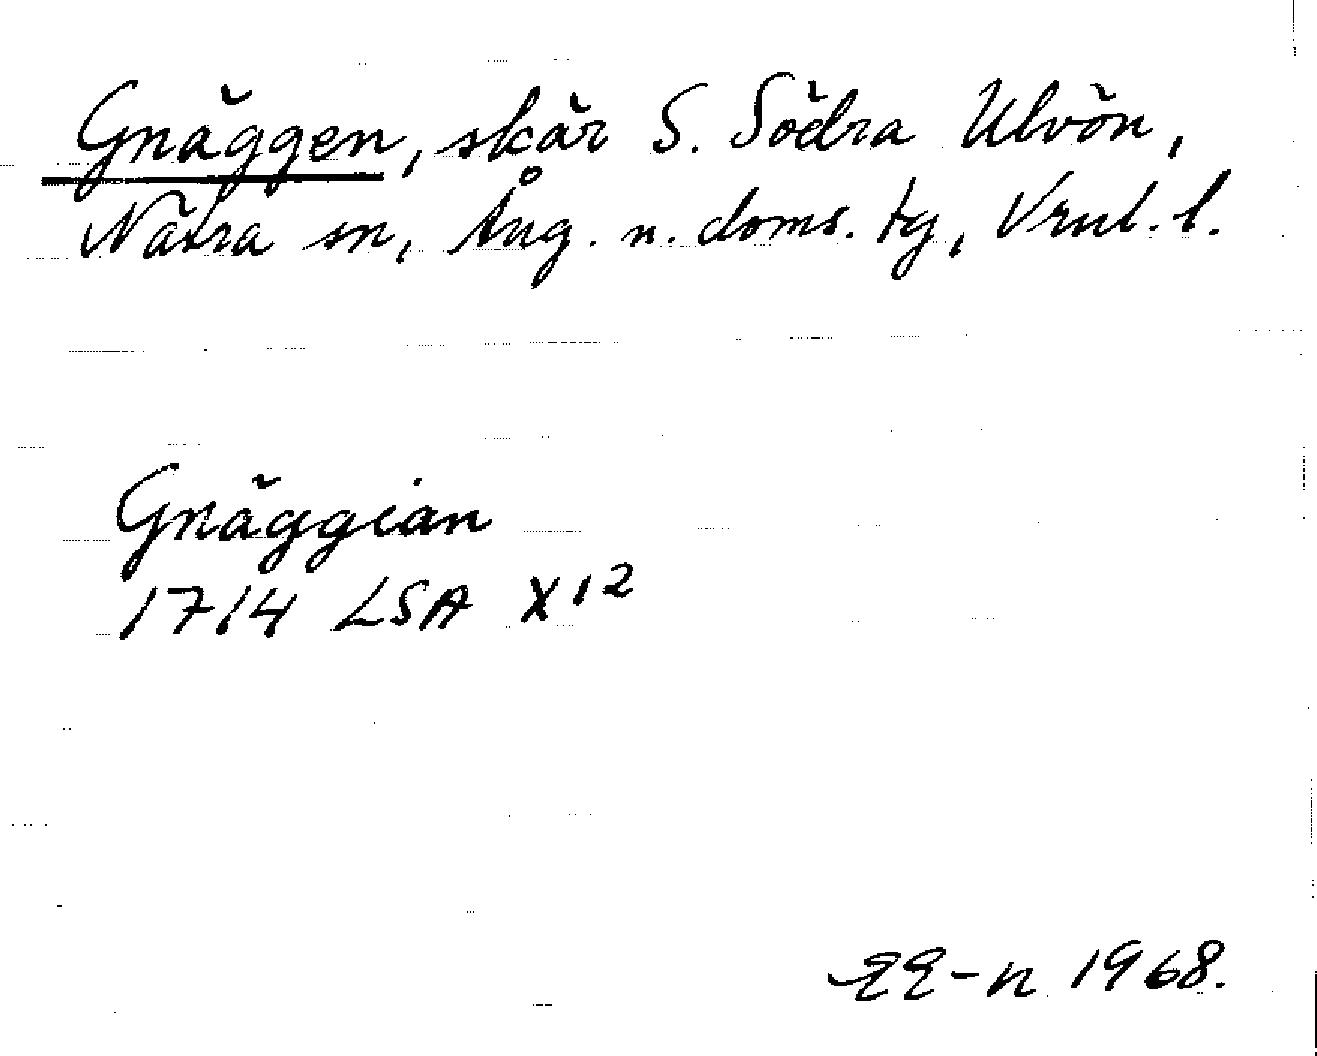 Gnäggen, skär S. Södra Ulvön,
Nätra sn, Ång. n. doms. tg, Vrnl. l.
Gnäggian
1714 LSA X 12
EE-n 1968.